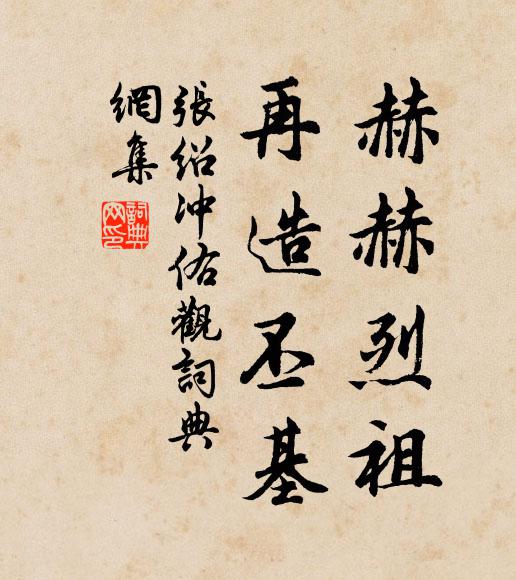 赫赫烈祖
再造丕基
張紹冲佑觀詞典
網集
詞典
网印